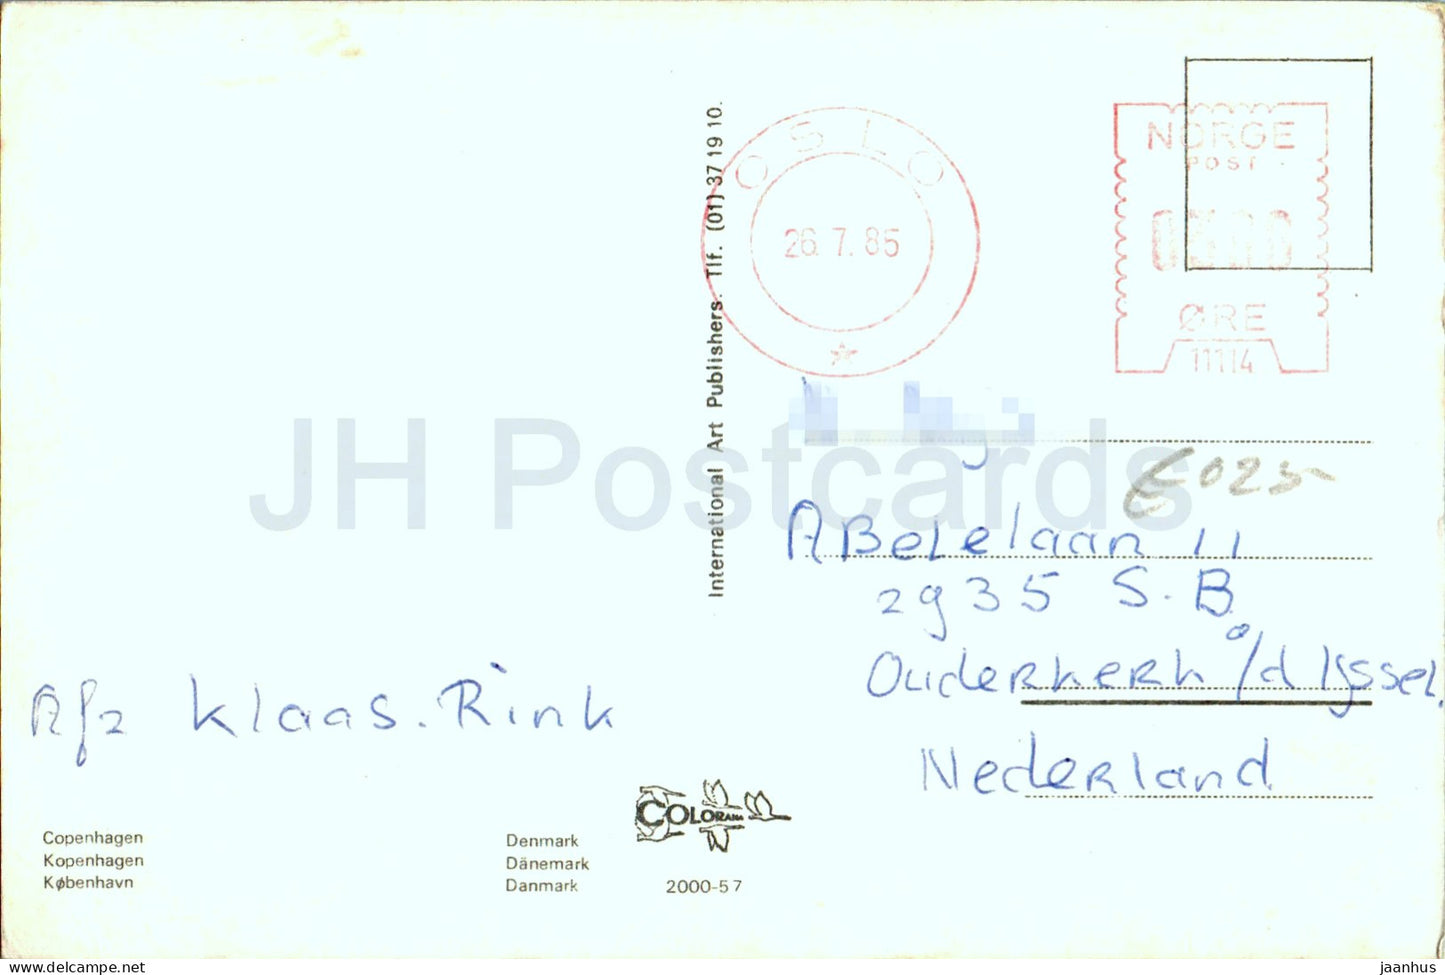 OSLO
26.7.85
NORGE
POST
ØRE
11114
International Art Publishers. Tlf. (01) 37 19 10.
JH Postcards
ABELElaan 11
2935 S.B.
OuderkERK a/d IJssel.
NederLand
Afz klaas.Rink
COLORAMA
Copenhagen
Kopenhagen
København
Denmark
Dänemark
Danmark
2000-57
www.delcampe.net
jaanhus